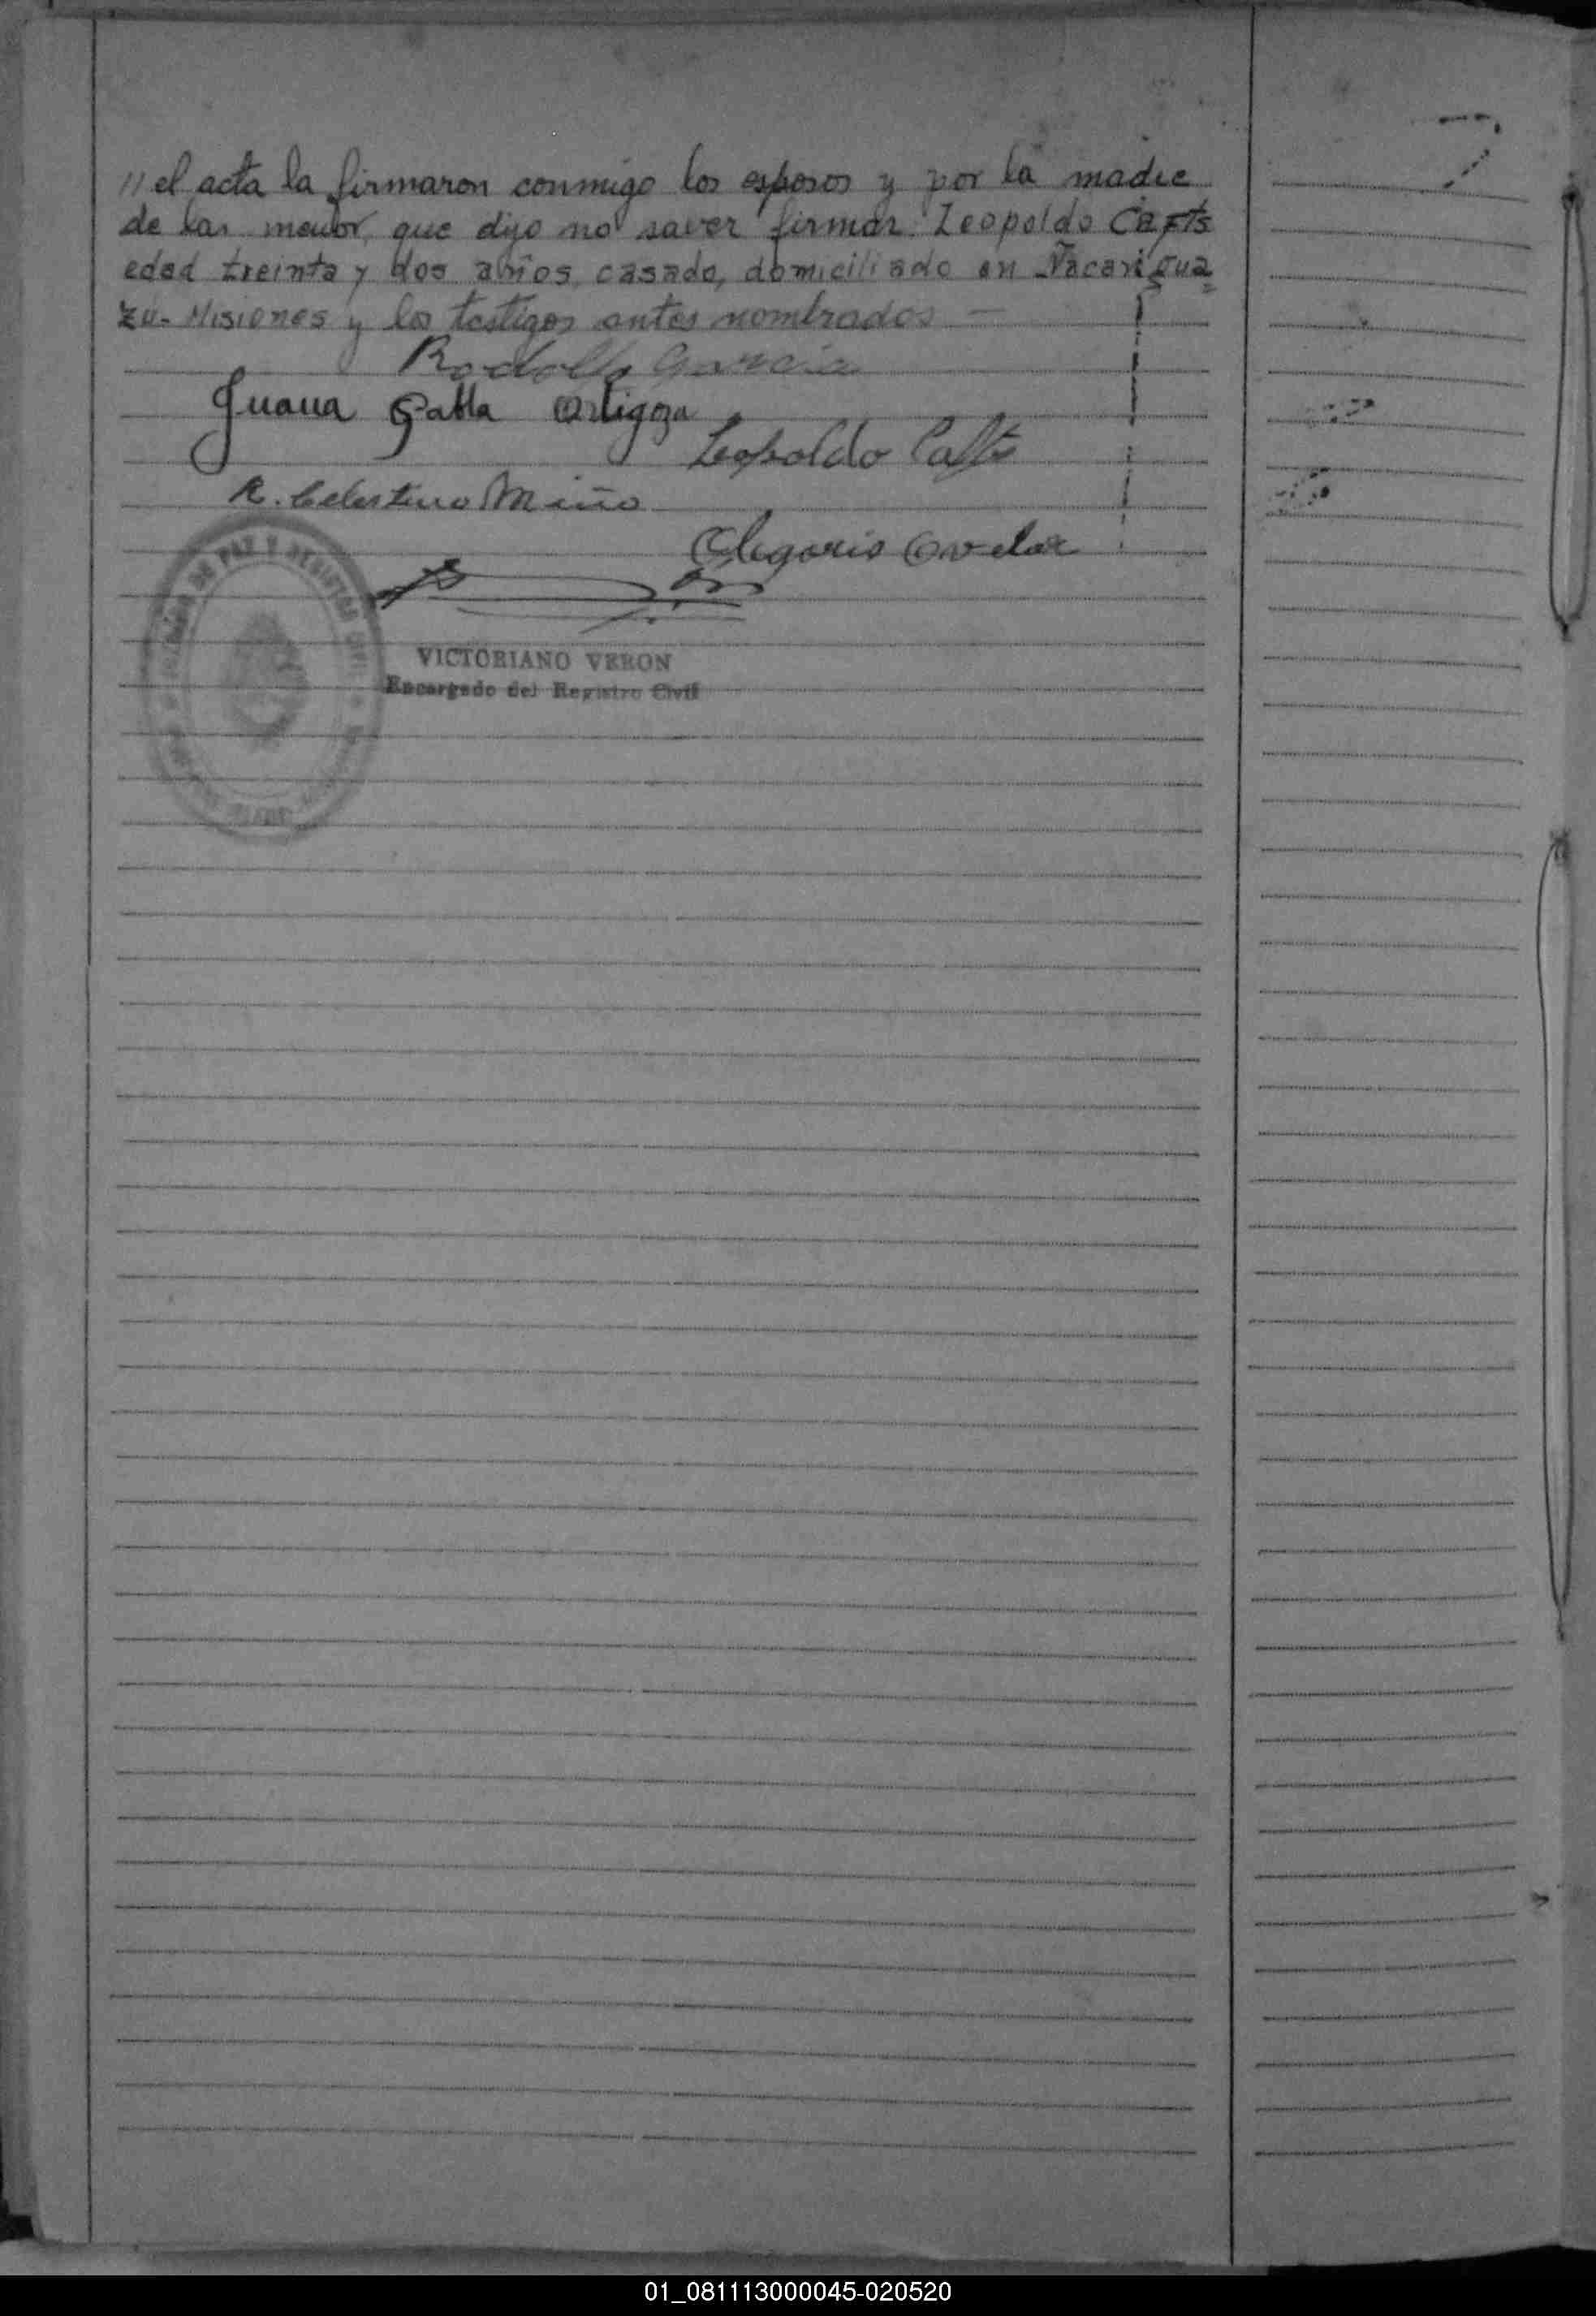 // el acta la firmaron conmigo los esposos y por la madre
de las menor, que dijo no saver firmar. Leopoldo Cafts
edad treinta y dos años, casado, domiciliado en Ñacanigua
zú - Misiones y los testigos antes nombrados —
Rodolfo Garcia
Juana Pabla Ortigoza
Leopoldo Cafts
R. Celestino Miño
Olegario Ovelar
DE PAZ Y
VICTORIANO VERON
Encargado del Registro Civil
01_081113000045-020520